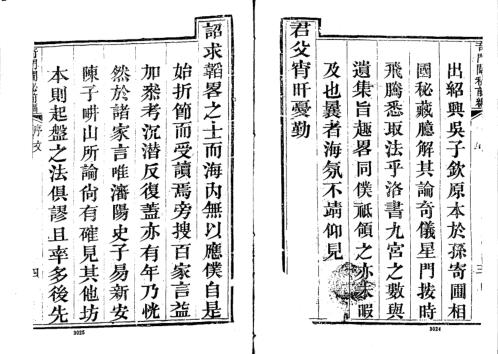 奇門闡秘前編
出紹興吳子欽原本於孫寄圃相
國秘藏臆解其論奇儀星門按時
飛騰悉取法乎洛書九宮之數與
遺集旨趣畧同僕祗領之亦未暇
及也曩者海氛不靖仰見
君父宵旰憂勤
三
3024
詔求韜畧之士而海內無以應僕自是
始折節而受讀焉旁搜百家言益
加叅考沉潛反復蓋亦有年乃恍
然於諸家言唯瀋陽史子易新安
陳子畊山所論尙有確見其他坊
本則起盤之法俱謬且率多後先
奇門闡秘前編
序文
四
3025